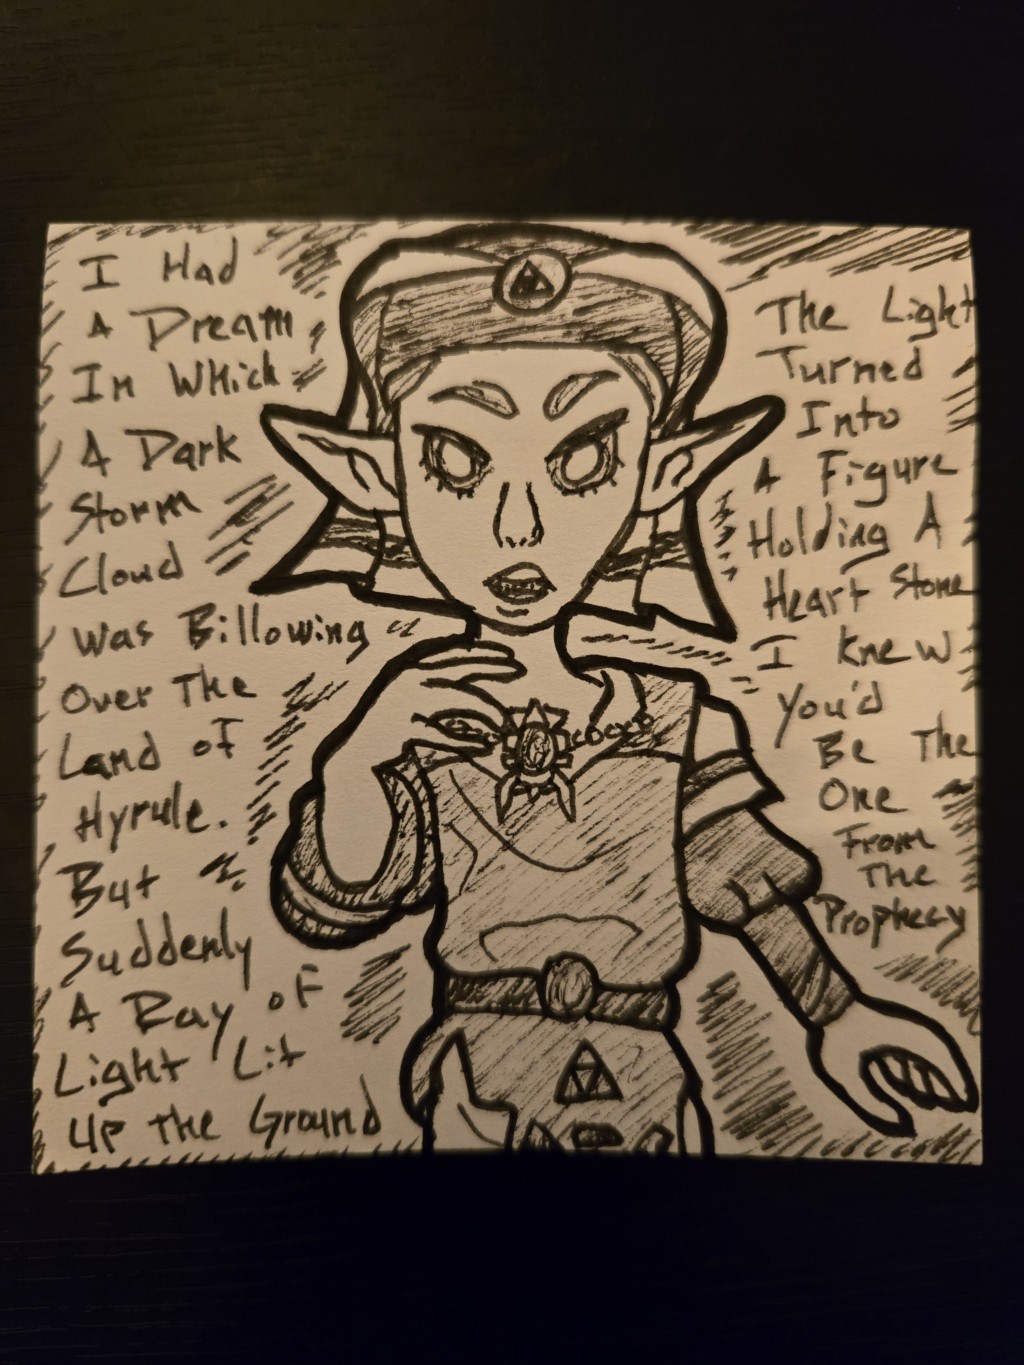 I Had
A Dream
In Which
A Dark
Storm
Cloud
Was Billowing
Over The
Land of
Hyrule.
But
Suddenly
A Ray of
Light Lit
Up the Ground
The Light
Turned
Into
A Figure
Holding A
Heart Stone
I knew
You'd
Be The
One
From
The
Prophecy